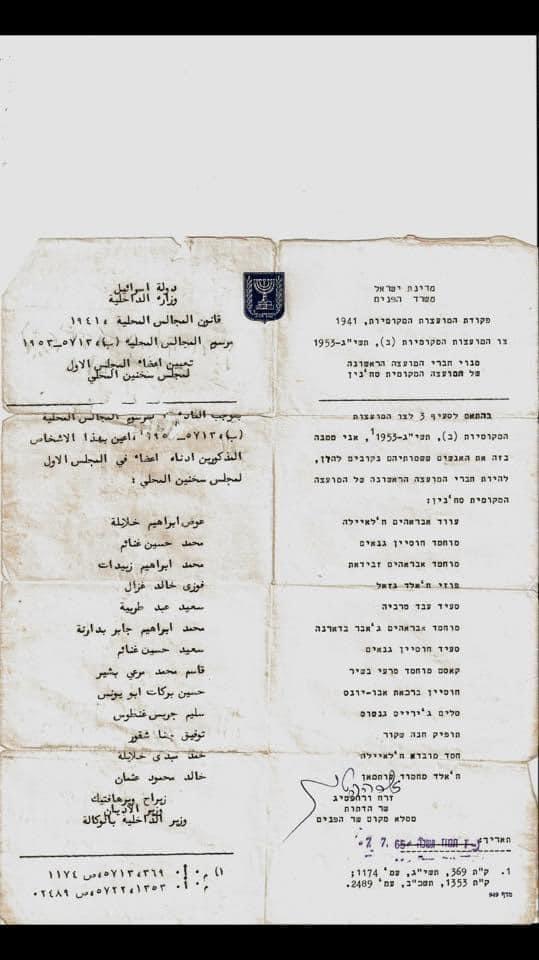 מדינת ישראל
משרד הפנים
פקודת המועצות המקומיות, 1941
צו המועצות המקומיות (ב), תשי"ג-1953
מנוי חברי המועצה הראשונה
של המועצה המקומית סח'נין
בהתאם לסעיף 3 לצו המועצות
המקומיות (ב), תשי"ג-1953¹, אני ממנה
בזה את האנשים ששמותיהם נקובים להלן,
להיות חברי המועצה הראשונה של המועצה
המקומית סח'נין:
עווד אבראהים ח'לאיילה
מוחמד חוסיין גנאים
מוחמד אבראהים זבידאת
פוזי ח'אלד גזאל
סעיד עבד טרביה
מוחמד אבראהים ג'אבר בדארנה
סעיד חוסיין גנאים
קאסם מוחמד מרעי בשיר
חוסיין ברכאת אבו-יונס
סלים ג'ירייס גנטוס
תופיק חנה שקור
חמד מובדא ח'לאיילה
ח'אלד מחמוד עותמאן
זרח ורהפטיג
שר הדתות
ממלא מקום שר הפנים
תאריך:
7. 7. 65
1. ק"ת 369, תשי"ג, עמ' 1174;
ק"ת 1353, תשכ"ב, עמ' 2489.
מדף 949
دولة اسرائيل
وزارة الداخلية
قانون المجالس المحلية ،١٩٤١
مرسوم المجالس المحلية (ب)، ٥٧١٣-١٩٥٣
تعيين اعضاء المجلس الاول
لمجلس سخنين المحلي
بموجب المادة مرسوم المجالس المحلية
(ب)، ٥٧١٣- اعين بهذا الاشخاص
المذكورين ادناه اعضاء في المجلس الاول
لمجلس سخنين المحلي :
عوض ابراهيم خلايلة
محمد حسين غنائم
محمد ابراهيم زبيدات
فوزي خالد غزال
سعيد عبد طربية
محمد ابراهيم جابر بدارنة
سعيد حسين غنائم
قاسم محمد مرعي بشير
حسين بركات ابو يونس
سليم جريس غنطوس
توفيق حنا شقور
حمد خلايلة
خالد محمود عثمان
زيراح ويرهافتيك
وزير الأديان
وزير الداخلية بالوكالة
١) م٠أ٠ ٣٦٩، ٥٧١٣، ص ١١٧٤
م٠أ٠ ١٣٥٣، ٥٧٢٢، ص ٢٤٨٩